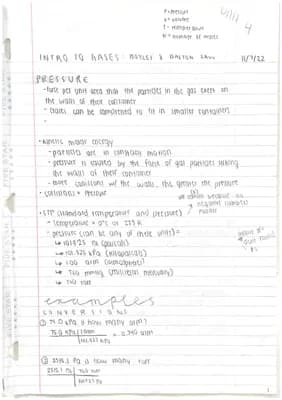 P = pressure
V = volume
T = temperature
N = number of moles
Unit 4
INTRO TO GASES: BOYLES & DALTON LAW 11/7/22
PRESSURE
- force per unit area that the particles in the gas exert on
the walls of their container
- Gases can be compressed to fit in smaller containers
-
- Kinetic molar energy
- particles are in constant motion
- pressure is caused by the force of gas particles hitting
the walls of their container
- more collisions w/ the walls, the greater the pressure
- collisions = pressure
(K)
* kelvin because no
negative numbers
matter
- STP (standard temperature and pressure)
- temperature = 0°C or 273 K
- pressure (can be any of these units) =
↳ 101325 Pa (pascals)
↳ 101.325 kPa (kilopascals)
↳ 1.00 atm (atmosphere)
↳ 760 mmHg (millimeters mercury)
↳ 760 torr
examples
CONVERSIONS
① 75.0 kPa is how many atm?
75.0 kPa | 1 atm = 0.740 atm
101.325 kPa
② 2515.1 Pa is how many torr
2515.1 Pa | 760 torr
101325 Pa